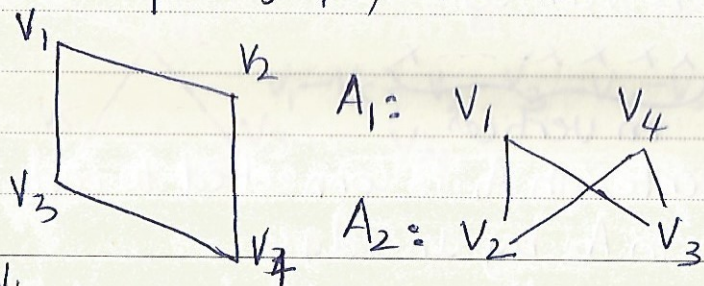 V1
V2
V3
V4
A1: V1 V4
A2: V2 V3